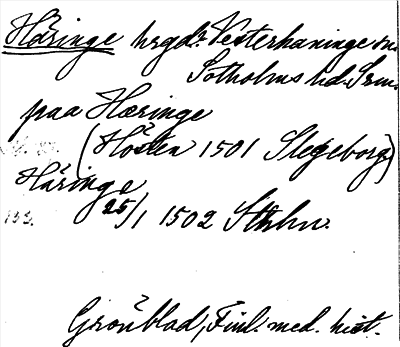 Häringe hrgd. Vesterhaninge sn.
Sotholms hd. Srm.
paa Hæringe
(Hösten 1501 Slegeborg)
Häringe
25/1 1502 Sthlm.
Grönblad, Finl. med. hist.